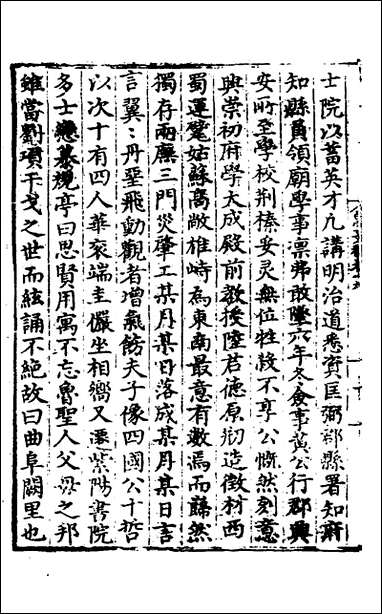 士院以蓄英才凡講明治道悉資匡弼郡縣署知府
知縣員領廟學事凛弗敢墜六年冬僉事黃公行郡興
安所至學校荆榛妥灵無位牲殺不享公慨然刻意
興崇初府學大成殿前教授陸君德原剏造徵材西
蜀運甓姑蘇高敞雄峙為東南最意有數焉而巋然
獨存兩廡三門災肇工某月某日落成某月某日言
言翼〻丹堊飛動觀者增氣飭夫子像四國公十哲
以次十有四人華衮端圭儼坐相嚮又還紫陽書院
多士懋墓規亭曰思賢用寓不忘魯聖人父母之邦
雖當劉項干戈之世而絃誦不絕故曰曲阜闕里也